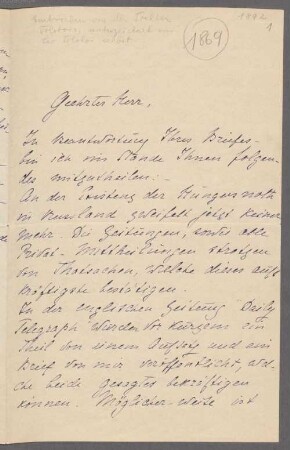 1892
1
1869
Geehrter Herr,
In Beantwortung Ihres Briefes
bin ich im Stande Ihnen folgen-
des mitzutheilen:
An der Existenz der Hungersnoth
in Russland zweifelt jetzt keiner
mehr. Die Zeitungen, sowie alle
Privat-Mittheilungen strotzen
von Thatsachen, welche dieses aufs
kräftigste bestätigen.
In der englischen Zeitung Daily
Telegraph wurden vor Kurzem ein
Theil von einem Aufsatz und ein
Brief von mir veröffentlicht, wel-
che beide gesagtes bekräftigen
können. Möglicher-Weise ist